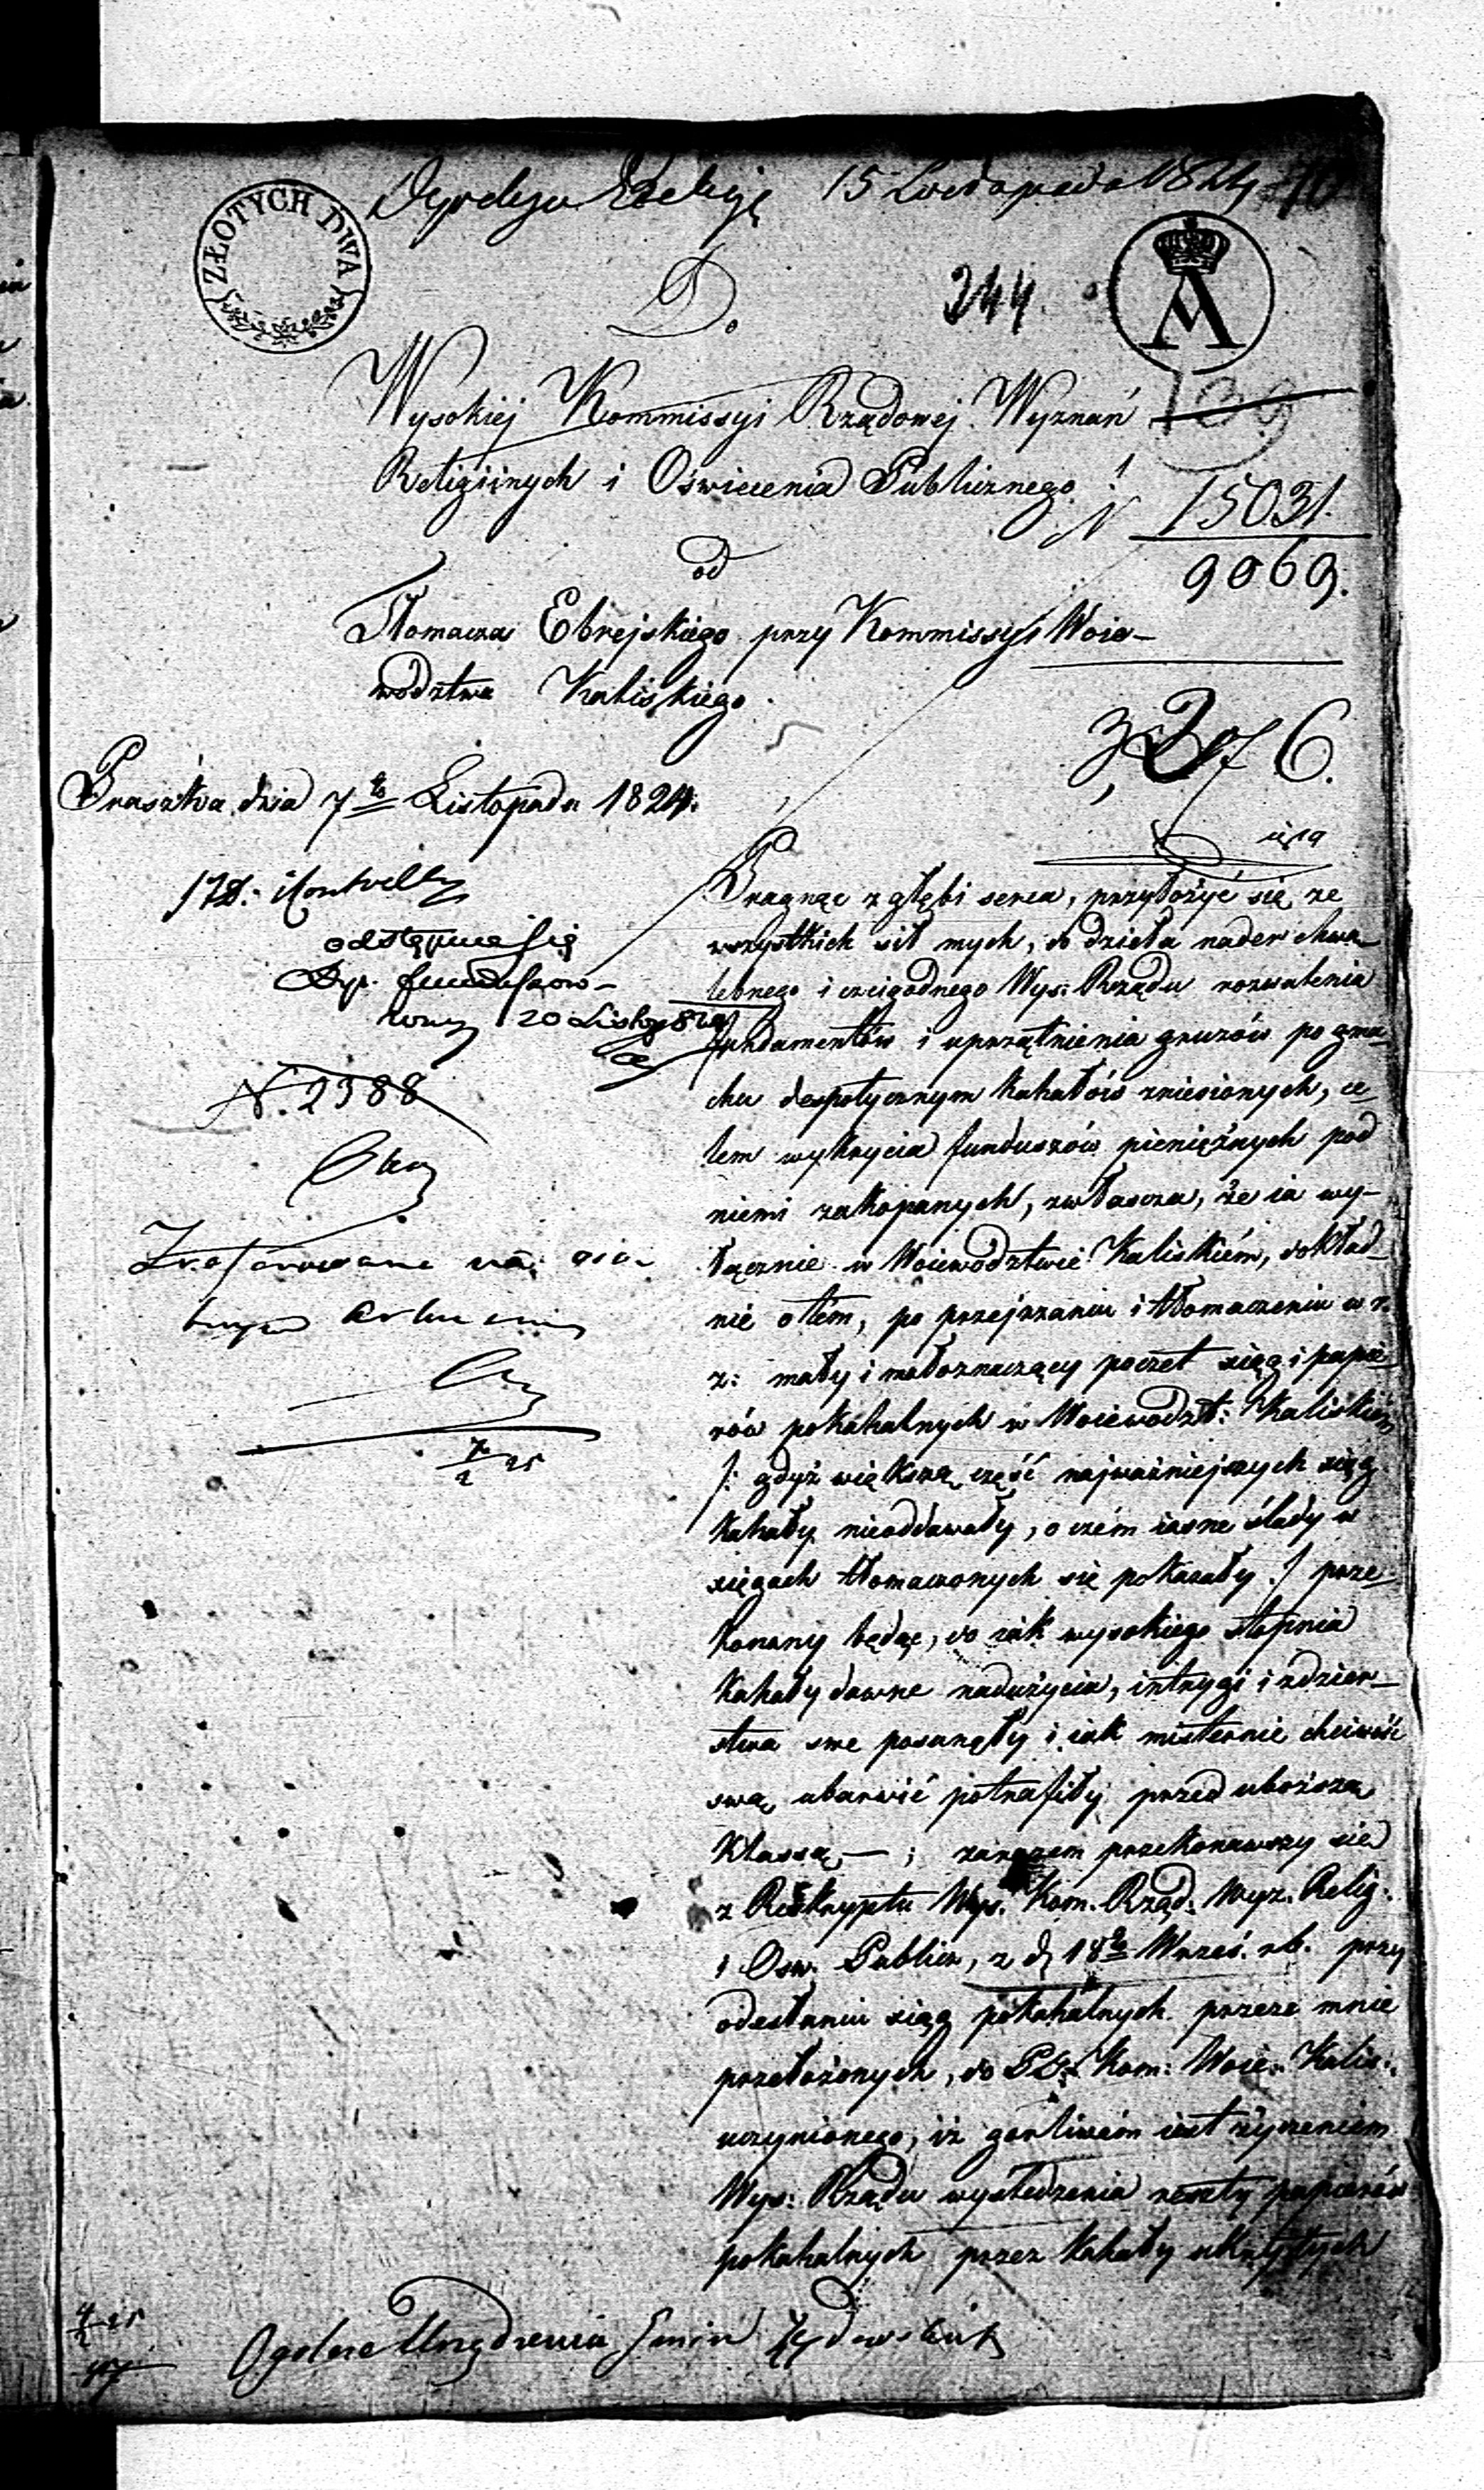 15 Listopada 1824
ZŁOTYCH DWA
D.
244.
A
Wysokiej Kommissyi Rządowej Wyznań
139
Religiinych i Oświecenia Publicznego!
N 15031.
9069.
od
Tłomacza Ebrejskiego przy Kommissyi Woie-
wodztwa Kaliskiego.
Praszka dnia 7go Listopada 1824.
Pragnąc z głębi serca, przyłożyć się ze
wszystkich sił mych, do dzieła nader chwa-
lebnego i czcigodnego Wys: Rządu rozwalenia
fundamentów i uprzątnienia gruzów po gma-
chu despotycznym Kahałów zniesionych, ce-
lem wykrycia funduszów pieniężnych pod
niemi zakopanych, zwłaszcza, że ia wy-
łącznie w Woiewodztwie Kaliskiém, dokład-
nie o tém, po przejrzeniu i tłomaczeniu w r.
z: mały i małoznaczący poczet xiąg i papie-
rów pokahalnych w Woiewodzt: Kaliskiém
/: gdyż większą część najważniejszych xiąg
Kahały nieoddawały, o czém iasne ślady w
xięgach tłomaczonych się pokazały :/ prze-
konany będąc, do iak wysokiego stopnia
Kahały dawne nadużycia, intrygi i zdzier-
stwa swe posunęły i iak misternie chciwość
swą ubarwić potrafiły przed uboższą
Klassą, — ; zarazem przekonawszy się
z Reskryptu Wys. Kom. Rząd. Wyz. Relig.
i Osw. Public, z d 18go Wrześ. rb. przy
odesłaniu xiąg pokahalnych przeze mnie
przełożonych, do Kom: Woie: Kalis:
uczynionego, iż gorliwém iest życzeniem
Wys: Rządu wyśledzenia reszty papierów
pokahalnych przez Kahały ukrytych
odstępuie się
20 Listop 824
N. 2388
Ogolne Urządzenia Gmin Żydowskich